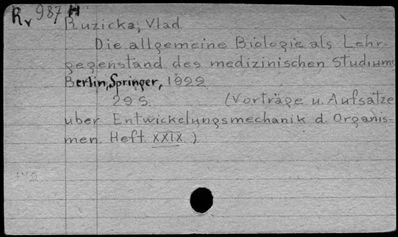 Rv 987 H
Ruzicka, Vlad.
Die allgemeine Biologie als Lehr-
gegenstand des medizinischen Studiums
Berlin, Springer, 1922
29 S. (Vorträge u. Aufsätze
über Entwickelungsmechanik d. Organis-
men. Heft XXIX.)